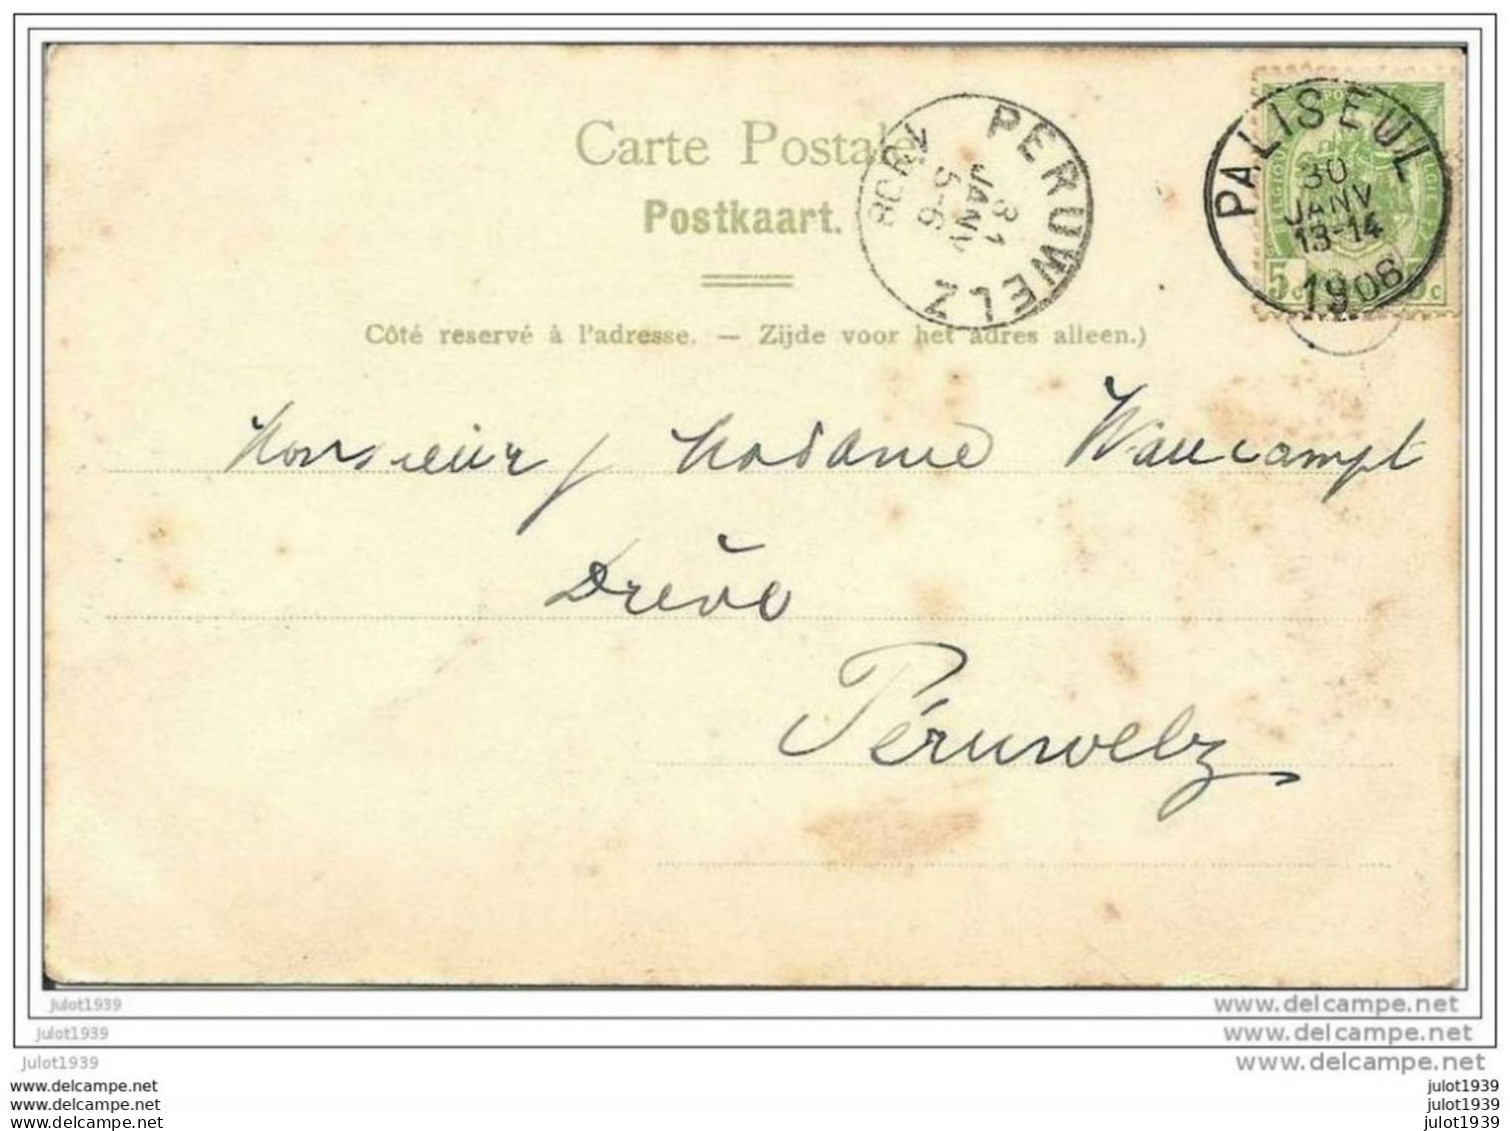 Carte Postale
Postkaart.
PERUWELZ
31
JANV
5-6
PALISEUL
30
JANV
13-14
1908
5c
Côté reservé à l'adresse. — Zijde voor het adres alleen.)
Monsieur / Madame Waucampt
Drève
Péruwelz
julot1939
www.delcampe.net
julot1939
www.delcampe.net
julot1939
www.delcampe.net
www.delcampe.net
julot1939
www.delcampe.net
julot1939
www.delcampe.net
julot1939